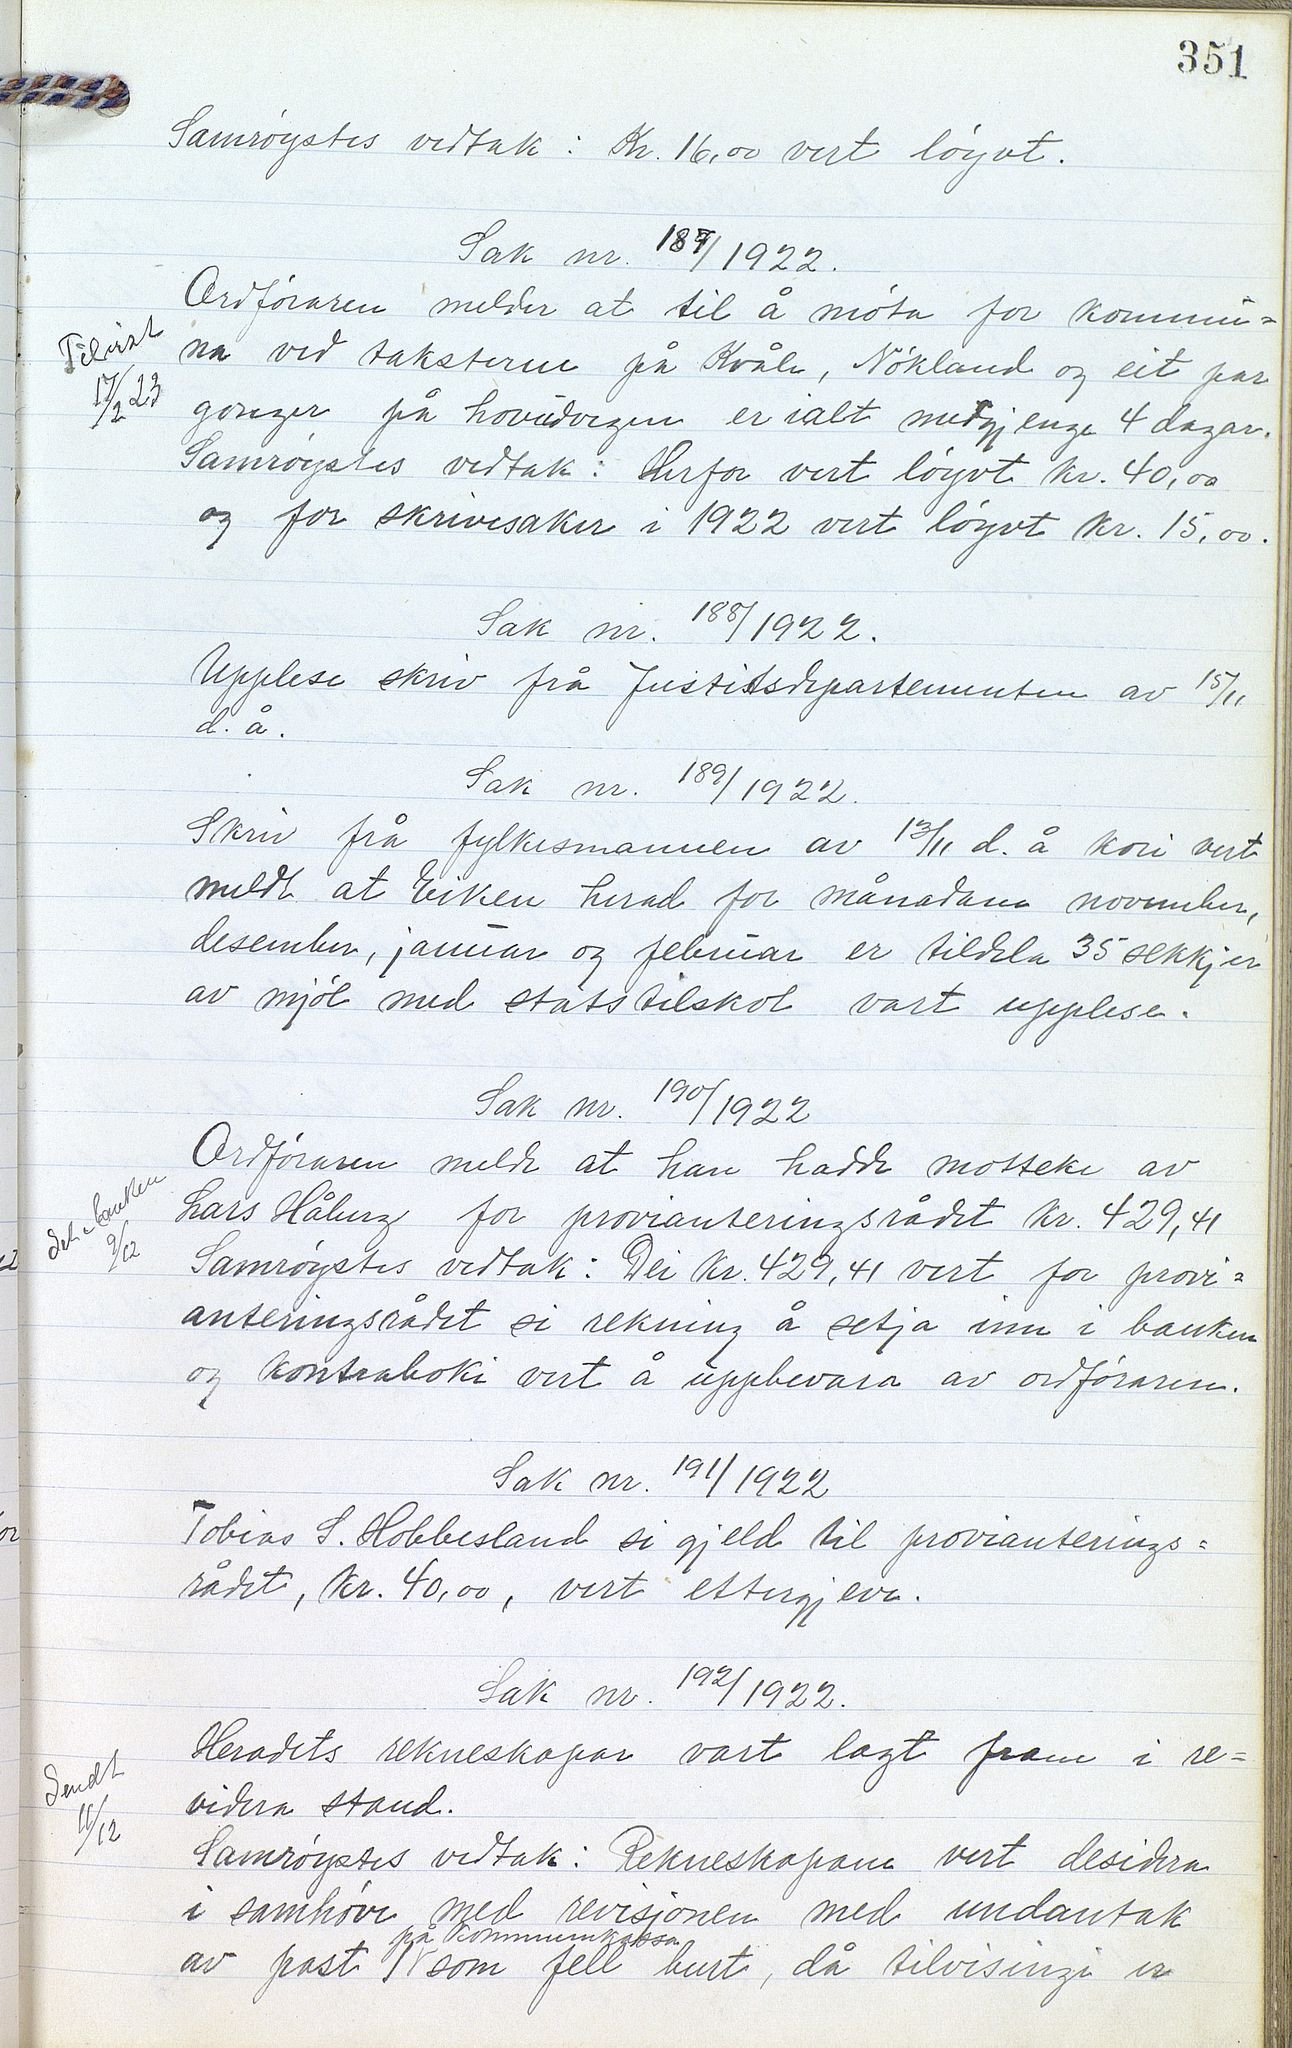 351
Samrøystes vedtak: Kr. 16,00 vert løyvt.
Sak nr. 187/1922.
Ordføraren melder at til å møta for kommu=
Tilvist
17/2 23
na ved taksterne på Kvåle, Nökland og eit par
gonger på hovudvegen er ialt medgjenge 4 dagar.
Samrøystes vedtak: Herfor vert løyvt kr. 40,00
og for skrivesaker i 1922 vert løyvt kr. 15,00.
Sak nr. 188/1922.
Upplese skriv frå Justitsdepartementen av 15/11
d. å.
Sak nr. 189/1922.
Skriv frå fylkesmannen av 13/11 d. å kori vert
meldt at Eiken herad for månadane november,
desember, januar og februar er tildela 35 sekkjer
av mjøl med statstilskot vart upplese.
Sak nr. 190/1922
Ordføraren melde at han hadde motteke av
Lars Håberg for provianteringsrådet kr. 429,41
Set i banken
9/12
Samrøystes vedtak: Dei kr. 429,41 vert for provi=
anteringsrådet si rekning å setja inn i banken
og kontraboki vert å uppbevara av ordføraren.
Sak nr. 191/1922
Tobias S. Hobbesland si gjeld til provianterings=
rådet, kr. 40,00, vert ettergjeve.
Sak nr. 192/1922.
Heradets rekneskapar vart lagt fram i re=
Sendt
11/12
videra stand.
Samrøystes vedtak: Rekneskapane vert desidera
i samhøve med revisjonen med undantak
på kommunekassa
av post IV som fell burt, då tilvisingi er